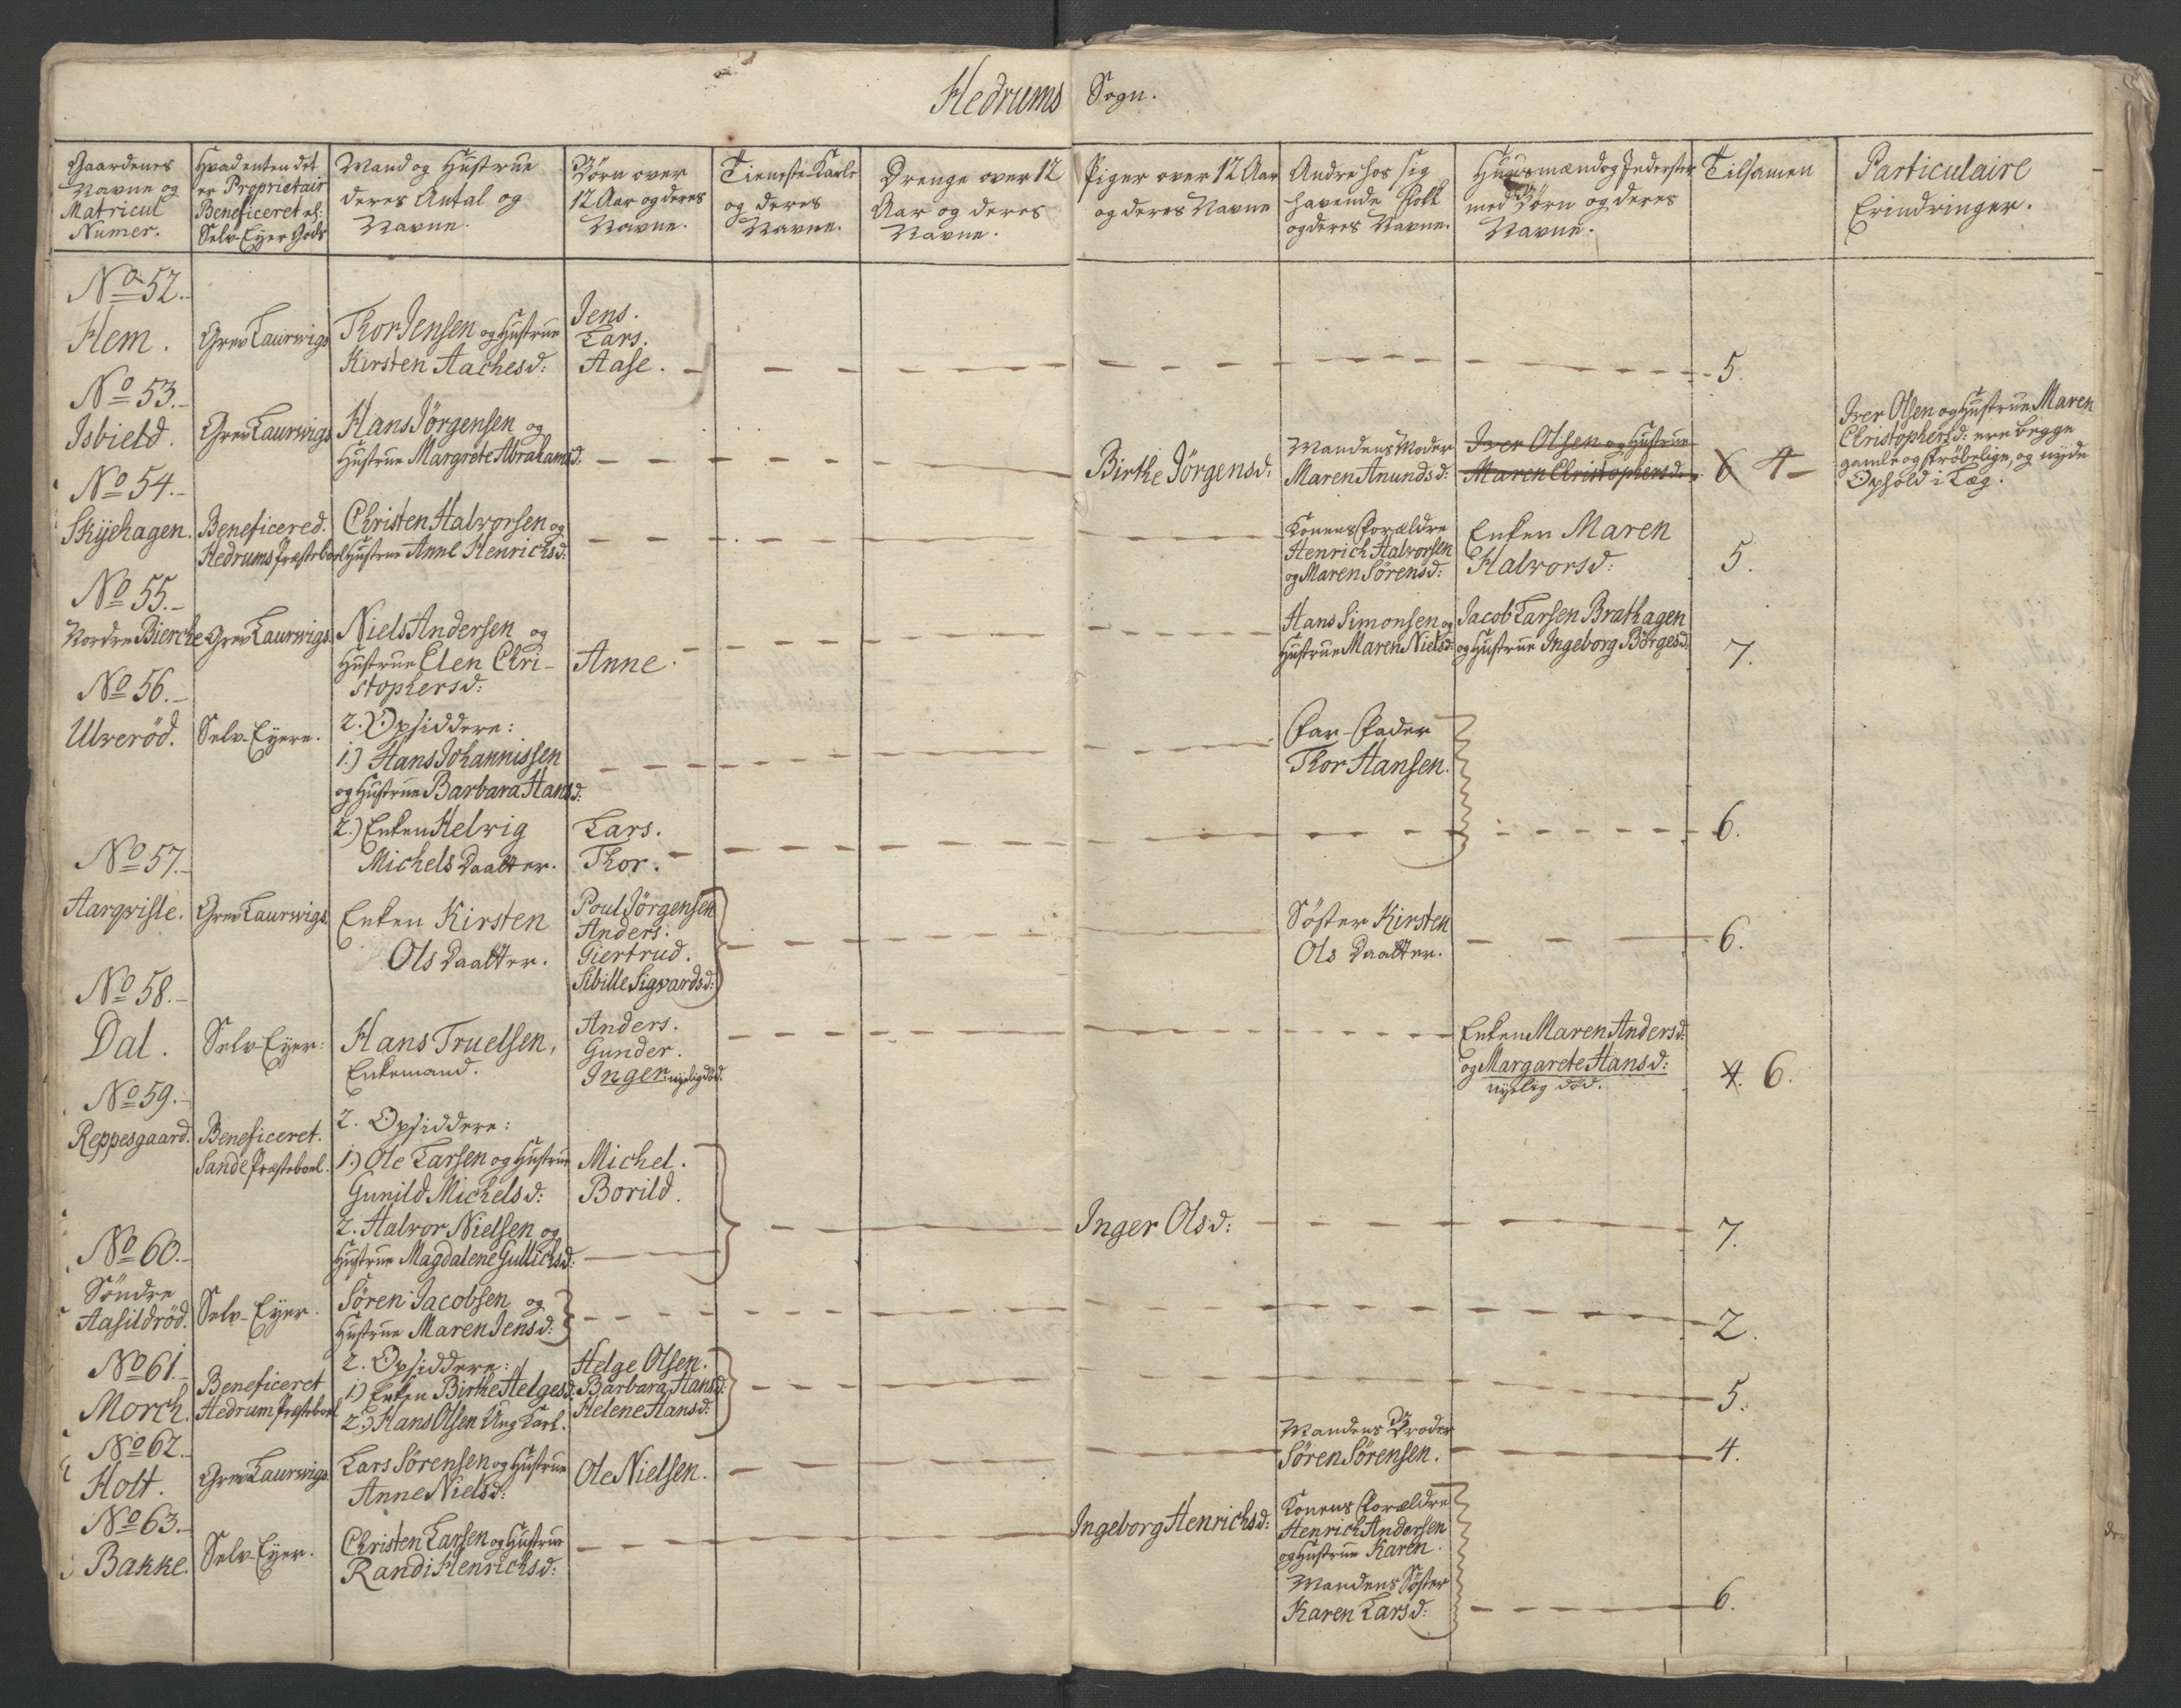 Hedrums Sogn.
Gaardenes
Navne og
Matricul
Numer.
Hvad enten det
er Proprietair
Beneficeret el:
Selv-Eyer Gods
Mand og Hustrue
deres Antal og
Navne.
Børn over
12 Aar og deres
Navne.
Tieneste-Karle
og deres
Navne.
Drenge over 12
Aar og deres
Navne.
Piger over 12 Aar
og deres Navne
Andre hos sig
havende Folk
og deres Navne.
Huusmænd og Inderster
med Børn og deres
Navne.
Tilsamen
Particulaire
Erindringer.
No 52.
Hem.
Grev Laurwigs
Thor Jensen og Hustrue
Kirsten Aachesd:
Jens.
Lars.
Aase.
5.
No 53.
Isbield.
Grev Laurwigs
Hans Jörgensen og
Hustrue Margrete Abrahamsd:
Birthe Jörgensd:
Mandens Moder
Maren Anundsd:
Iver Olsen og Hustrue
Maren Christophersd:
6 4
Iver Olsen og Hustrue Maren
Christophersd: ere begge
gamle og skrøbelige, og nyde
Ophold i Læg.
No 54.
Skyehagen.
Beneficered.
Hedrums Præsteboel
Christen Halvorsen og
Hustrue Anne Henrichsd:
Konens Forældre
Henrich Halvorsen
og Maren Sörensd:
Enken Maren
Halvorsd:
5.
No 55.
Nordre Bierche
Grev Laurwigs.
Niels Andersen og
Hustrue Elen Chri-
stophersd:
Anne.
Hans Simonsen og
Hustrue Maren Nielsd:
Jacob Larsen Brathagen
og Hustrue Ingeborg Börgesd:
7.
No 56.
Ulveröd.
Selv-Eyere.
2. Opsiddere:
1.) Hans Johannissen
og Hustrue Barbara Hansd:
Far-Fader
Thor Hansen.
2.) Enken Helvig
Michels Daatter.
Lars.
Thor.
6.
No 57.
Aarqvisle.
Grev Laurwigs.
Enken Kirsten
Ols Daatter.
Poul Jörgensen
Anders.
Giertrud.
Sibille Sigvardsd:
Söster Kirsten
Ols Daatter.
6.
No 58.
Dal.
Selv-Eyer:
Hans Truelsen,
Enkemand.
Anders.
Gunder.
Inger nyelig död.
Enken Maren Andersd:
og Margarete Hansd:
nyelig död.
4. 6.
No 59.
Reppesgaard.
Beneficeret.
Sande Præsteboel.
2. Opsiddere:
1.) Ole Larsen og Hustrue
Gunild Michelsd:
Michel.
Borild.
2. Halvor Nielsen og
Hustrue Magdalene Gullichsd:
Inger Olsd:
7.
No 60.
Söndre
Aasildröd.
Selv-Eyer.
Sören Jacobsen og
Hustrue Maren Jensd:
2.
No 61.
Morch.
Beneficeret
Hedrum Præsteboel
2. Opsiddere:
1) Enken Birthe Helgesd:
2.) Hans Olsen Ung Karl.
Helge Olsen.
Barbara Hansd:
Helene Hansd:
5.
No 62.
Holt.
Grev Laurwigs.
Lars Sörensen og Hustrue
Anne Nielsd:
Ole Nielsen.
Mandens Broder
Sören Sörensen.
4.
No 63.
Bakke.
Selv-Eyer.
Christen Larsen og Hustrue
Randi Henrichsd:
Ingeborg Henrichsd:
Konens Forældre
Henrich Andersen
og Hustrue Karen.
Mandens Söster
Karen Larsd:
6.